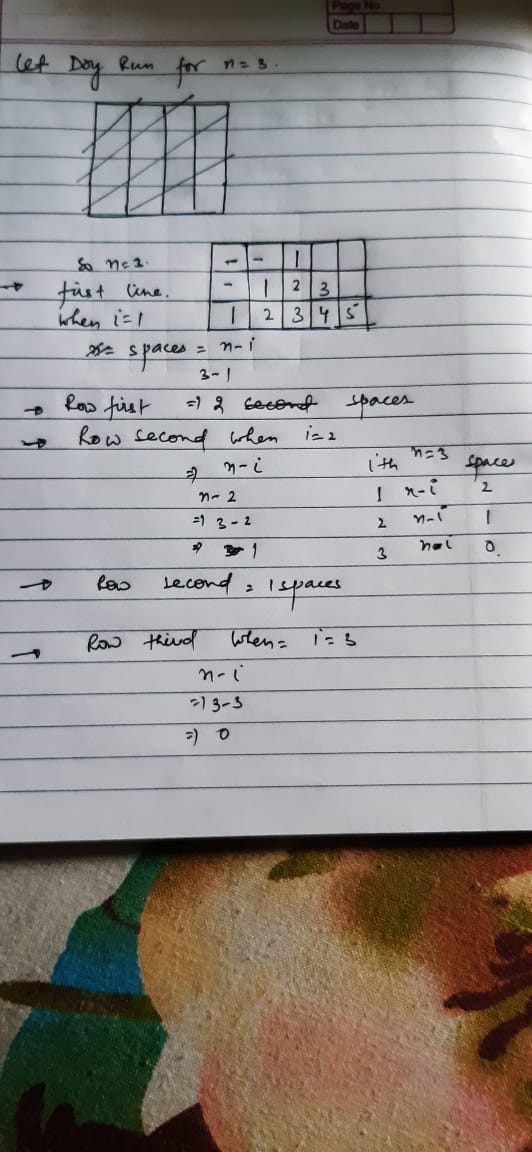 Page No.
Date
Let Doy Run for n = 3.
So n = 3.
- - 1
→ first line.
- 1 2 3
when i = 1
1 2 3 4 5
spaces = n - i
3 - 1
→ Row first => 2 second spaces
→ Row second when i = 2
=> n - i
i'th n = 3 space
n - 2
1 n - i 2
=> 3 - 2
2 n - i 1
=> 1
3 n - i 0.
→ Row second = 1 spaces
→ Row third when = i = 3
n - i
=> 3 - 3
=> 0